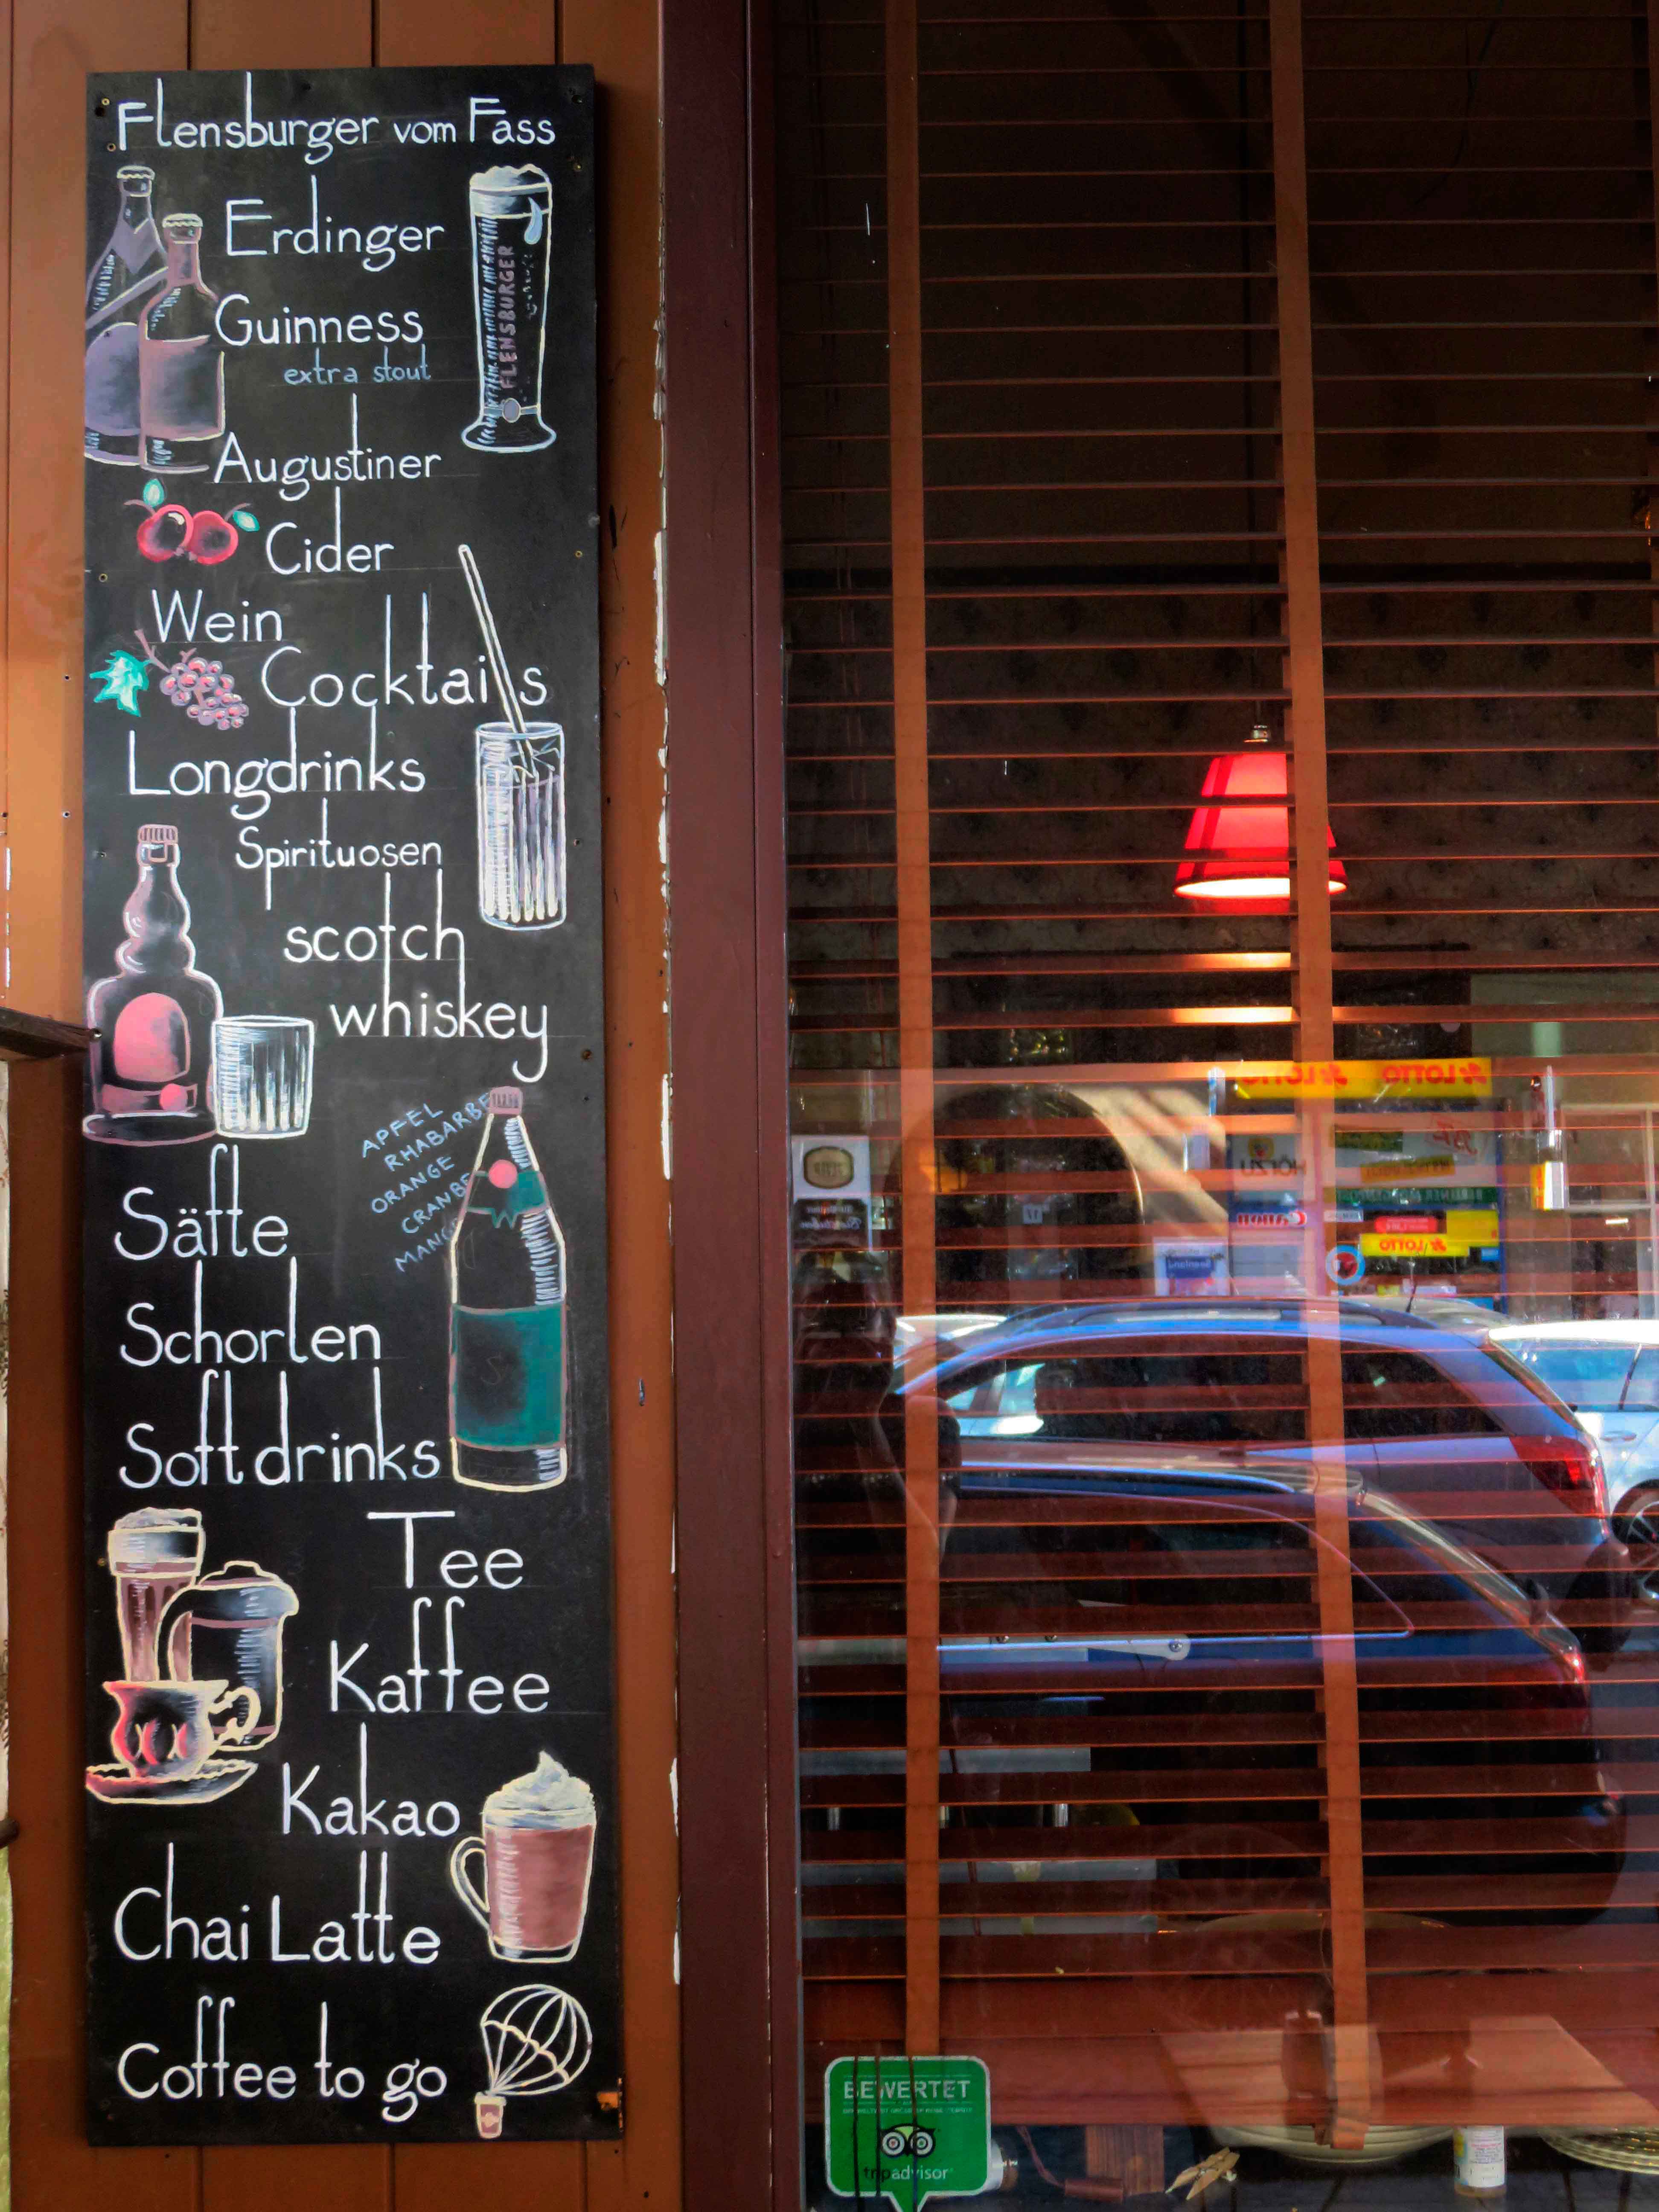 Flensburger vom Fass
Erdinger
Guinness
extra stout
FLENSBURGER
Augustiner
Cider
Wein
Cocktails
Longdrinks
Spirituosen
scotch
whiskey
APFEL
RHABARBE
ORANGE
CRANBE
MANG
Säfte
Schorlen
Softdrinks
Tee
Kaffee
Kakao
Chai Latte
Coffee to go
LOTTO LOTTO
Canon
LOTTO
BEWERTET
tripadvisor